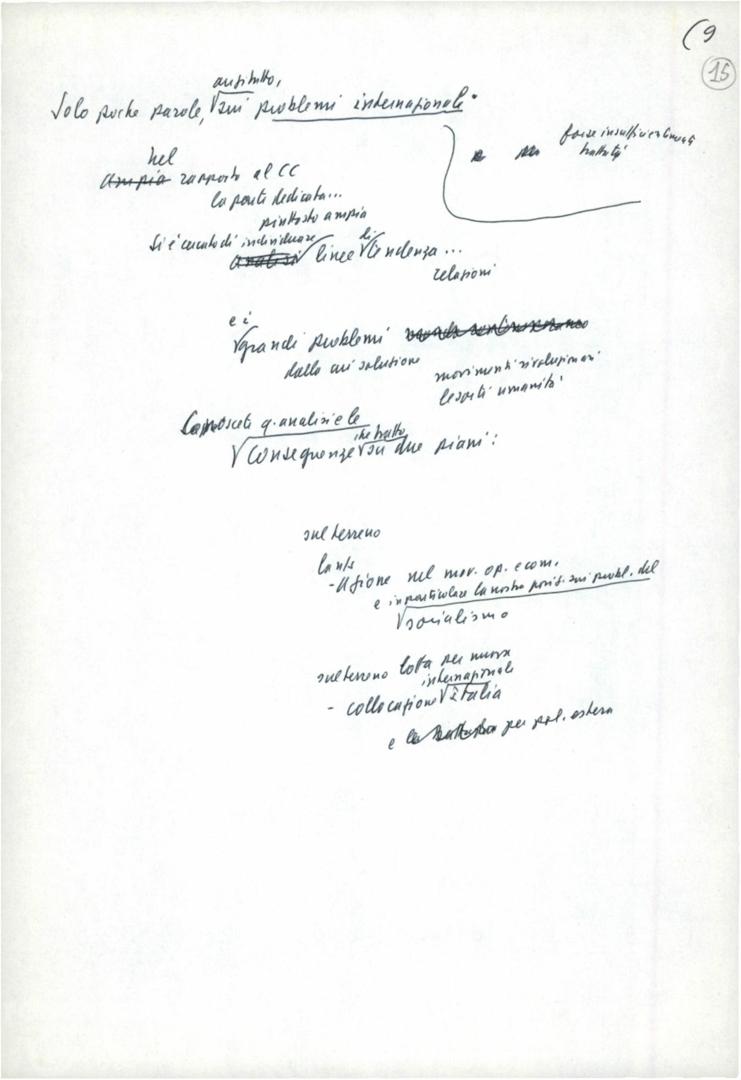 (9
15
anzitutto,
Solo poche parole, sui problemi internazionali
forse insufficientemente
trattati
nel
ampia rapporto al CC
la parte dedicata...
piuttosto ampia
Si è cercato di individuare di
analisi linee tendenza...
relazioni
e i
grandi problemi
dalla cui soluzione
movimenti rivoluzionari
le sorti umanità
Conoscete q. analisi e le
che tratto
conseguenze su due piani:
sul terreno
- Azione nel mov. op. e com.
e in particolare la nostra posiz. sui probl. del
socialismo
sul terreno lotta per nuova
internazionale
- collocazione Italia
e per pol. estera